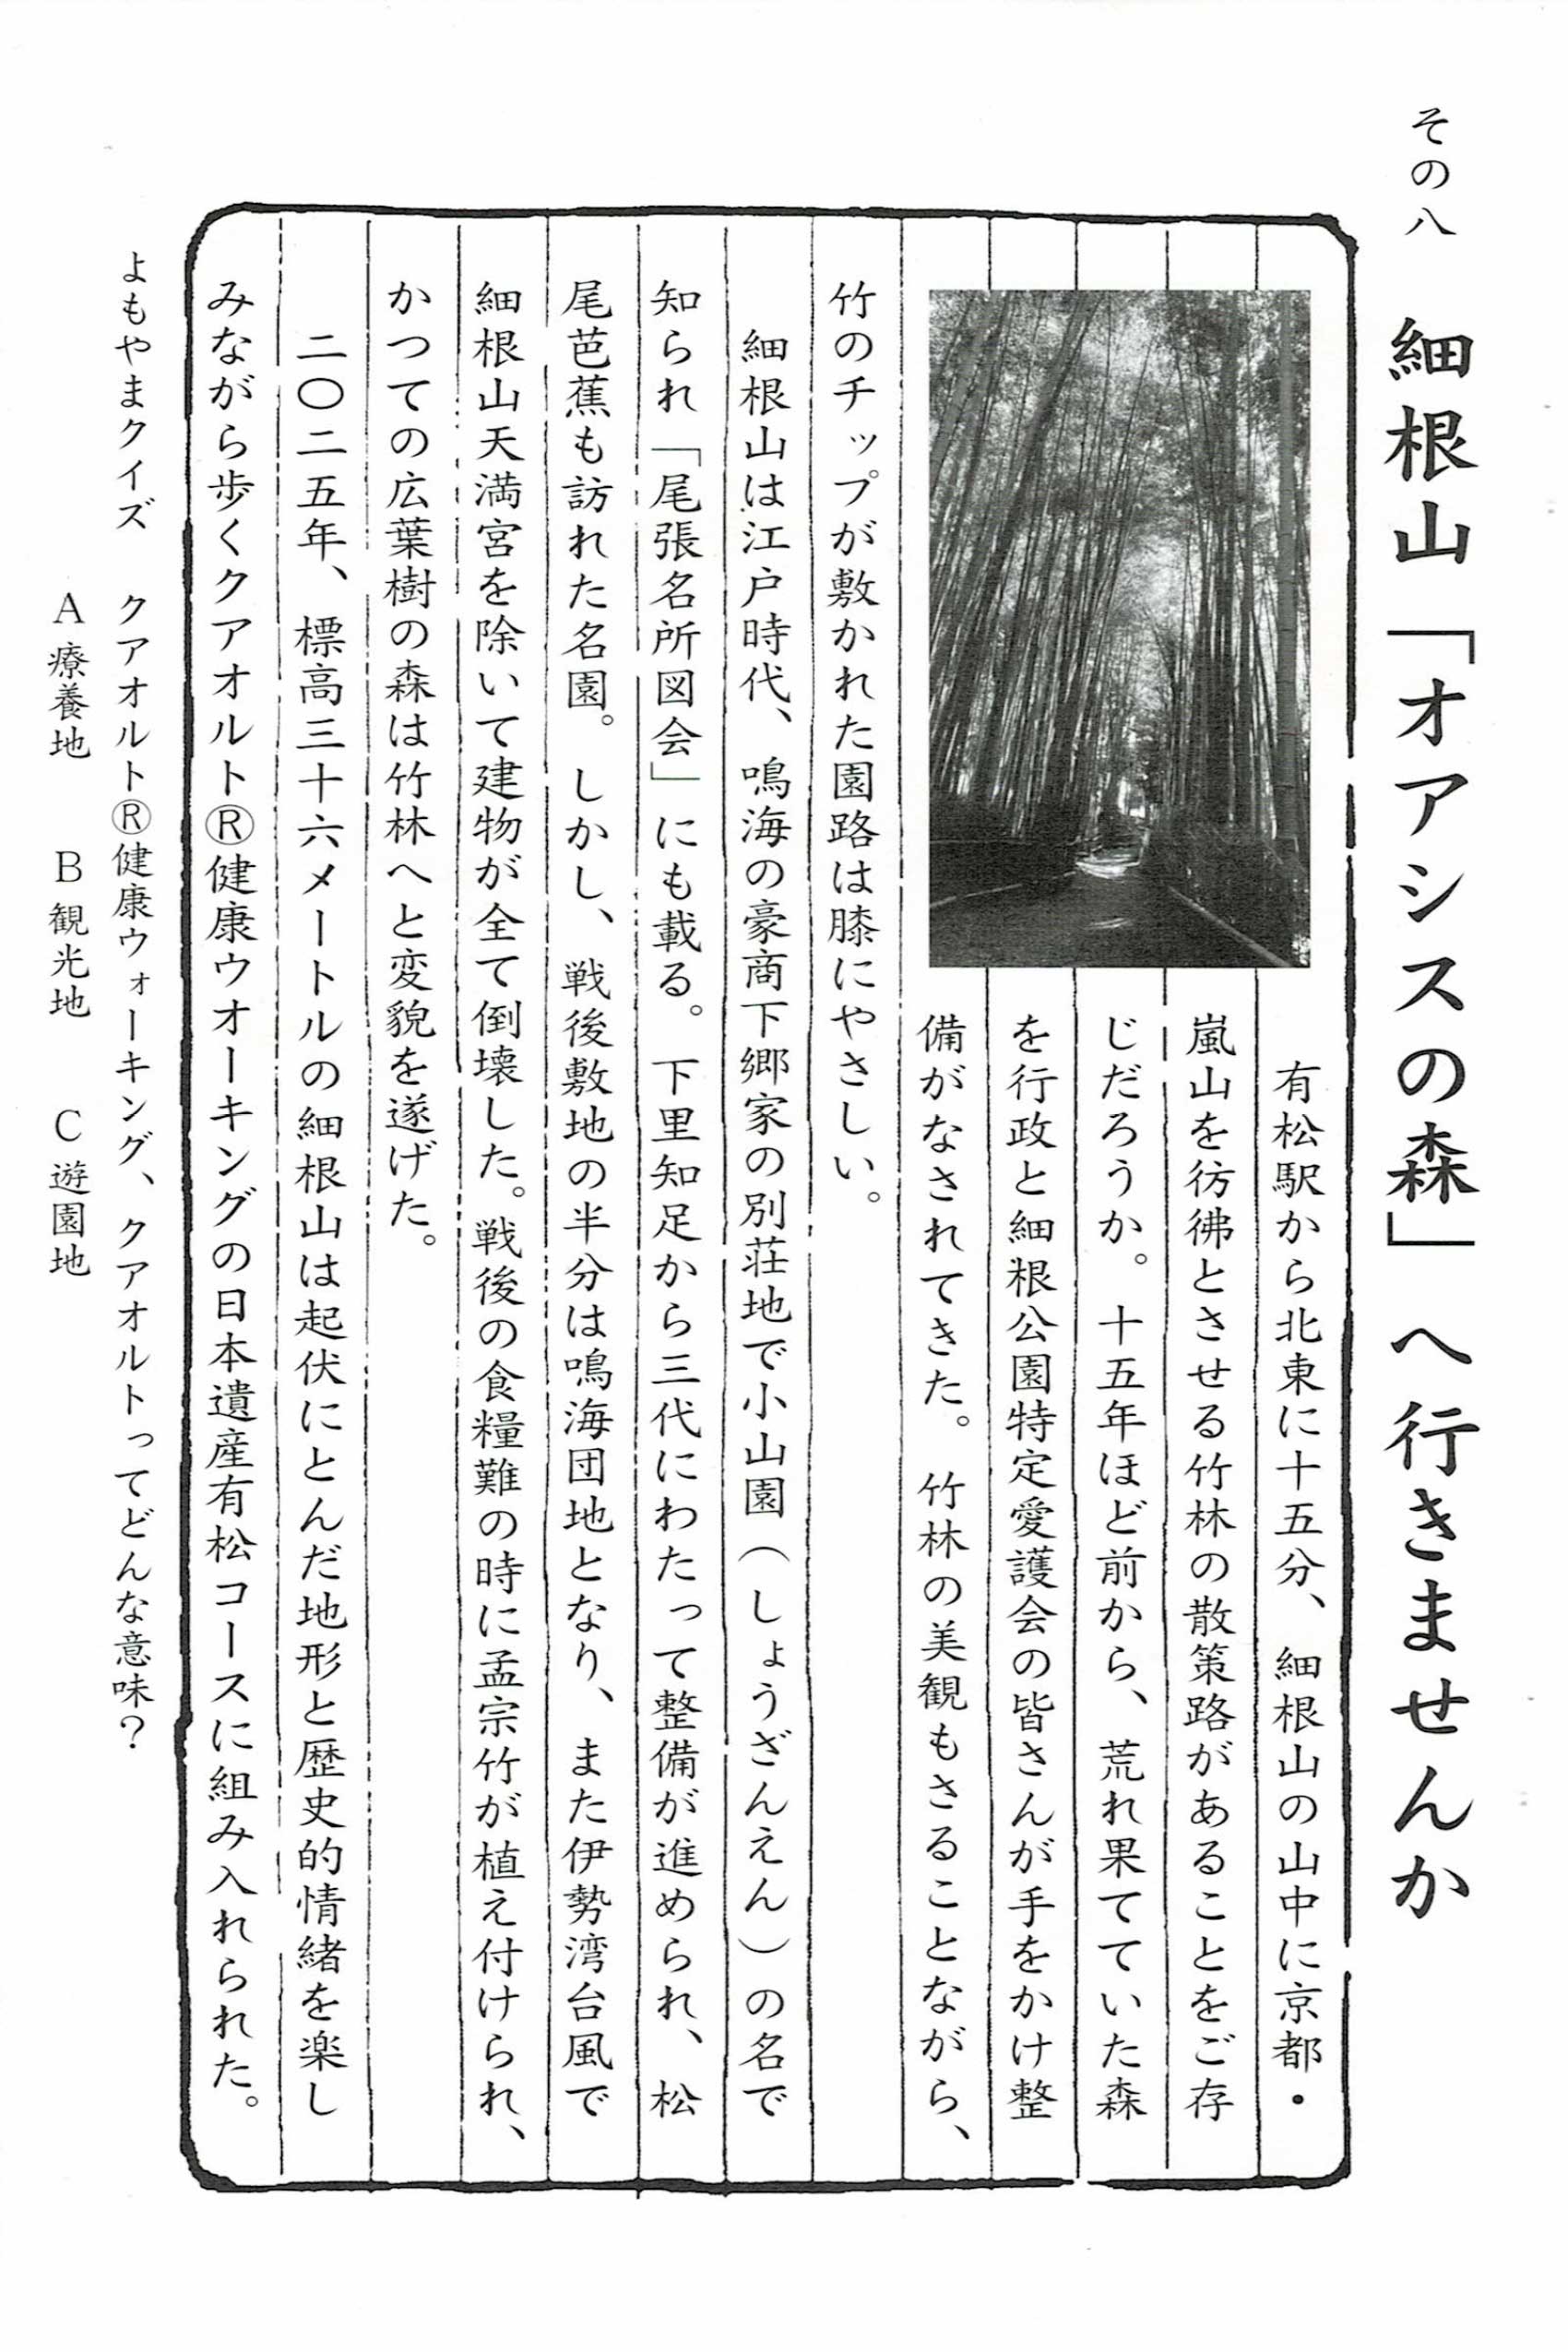 その八　細根山「オアシスの森」へ行きませんか
有松駅から北東に十五分、細根山の山中に京都・
嵐山を彷彿とさせる竹林の散策路があることをご存
じだろうか。十五年ほど前から、荒れ果てていた森
を行政と細根公園特定愛護会の皆さんが手をかけ整
備がなされてきた。竹林の美観もさることながら、
竹のチップが敷かれた園路は膝にやさしい。
細根山は江戸時代、鳴海の豪商下郷家の別荘地で小山園（しょうざんえん）の名で
知られ「尾張名所図会」にも載る。下里知足から三代にわたって整備が進められ、松
尾芭蕉も訪れた名園。しかし、戦後敷地の半分は鳴海団地となり、また伊勢湾台風で
細根山天満宮を除いて建物が全て倒壊した。戦後の食糧難の時に孟宗竹が植え付けられ、
かつての広葉樹の森は竹林へと変貌を遂げた。
二〇二五年、標高三十六メートルの細根山は起伏にとんだ地形と歴史的情緒を楽し
みながら歩くクアオルト®健康ウオーキングの日本遺産有松コースに組み入れられた。
よもやまクイズ　クアオルト®健康ウォーキング、クアオルトってどんな意味？
A 療養地　B 観光地　C 遊園地